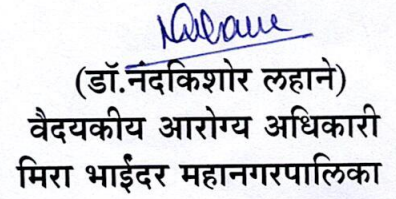 (डॉ.नंदकिशोर लहाने)
वैदयकीय आरोग्य अधिकारी
मिरा भाईंदर महानगरपालिका